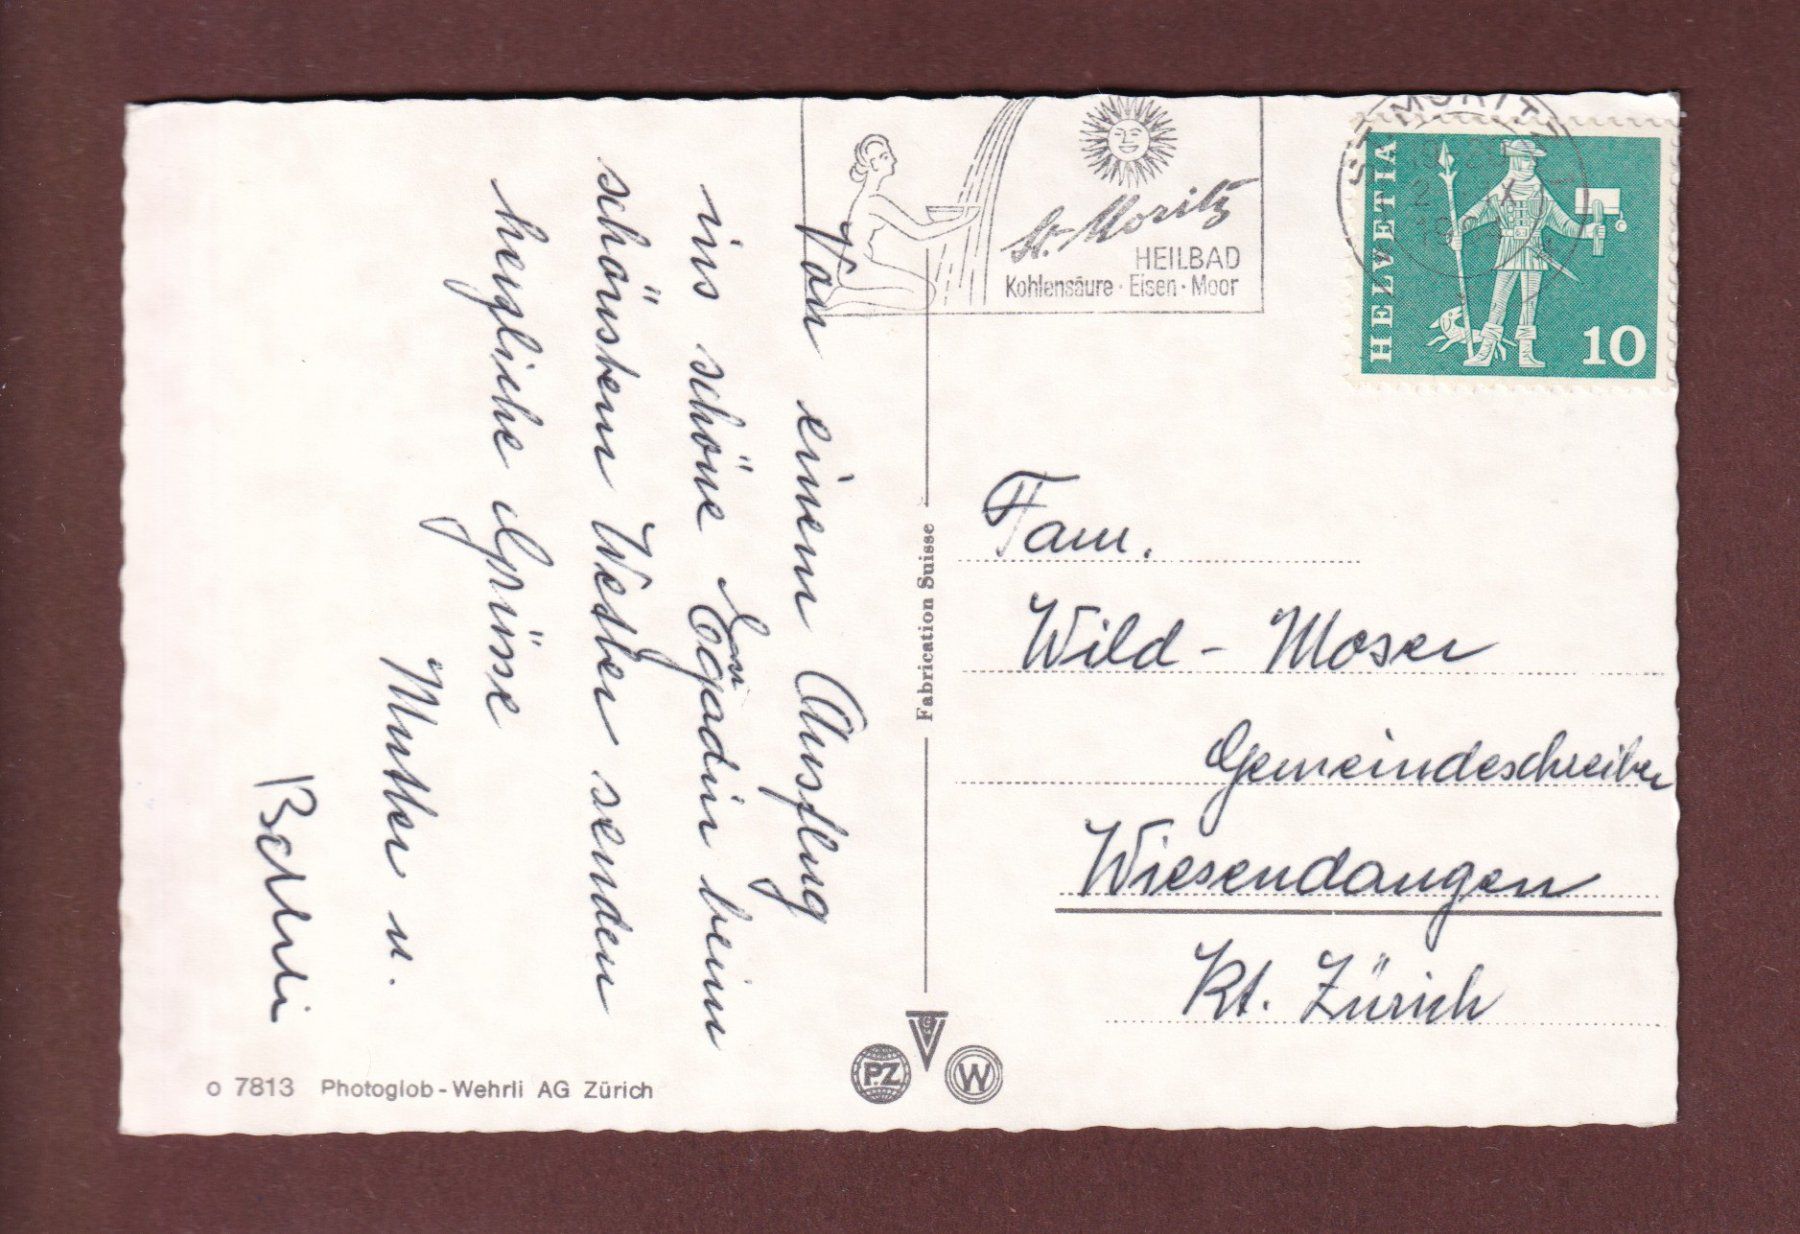 Von einem Ausflug
ins schöne Engadin beim
schönstem Wetter senden
herzliche Grüsse
Mutter u.
St. Moritz
HEILBAD
Kohlensäure · Eisen · Moor
ST. MORITZ
HELVETIA
10
Fabrication Suisse
Fam.
Wild - Moser
Gemeindeschreiber
Wiesendangen
Kt. Zürich
PZ
W
o 7813 Photoglob-Wehrli AG Zürich